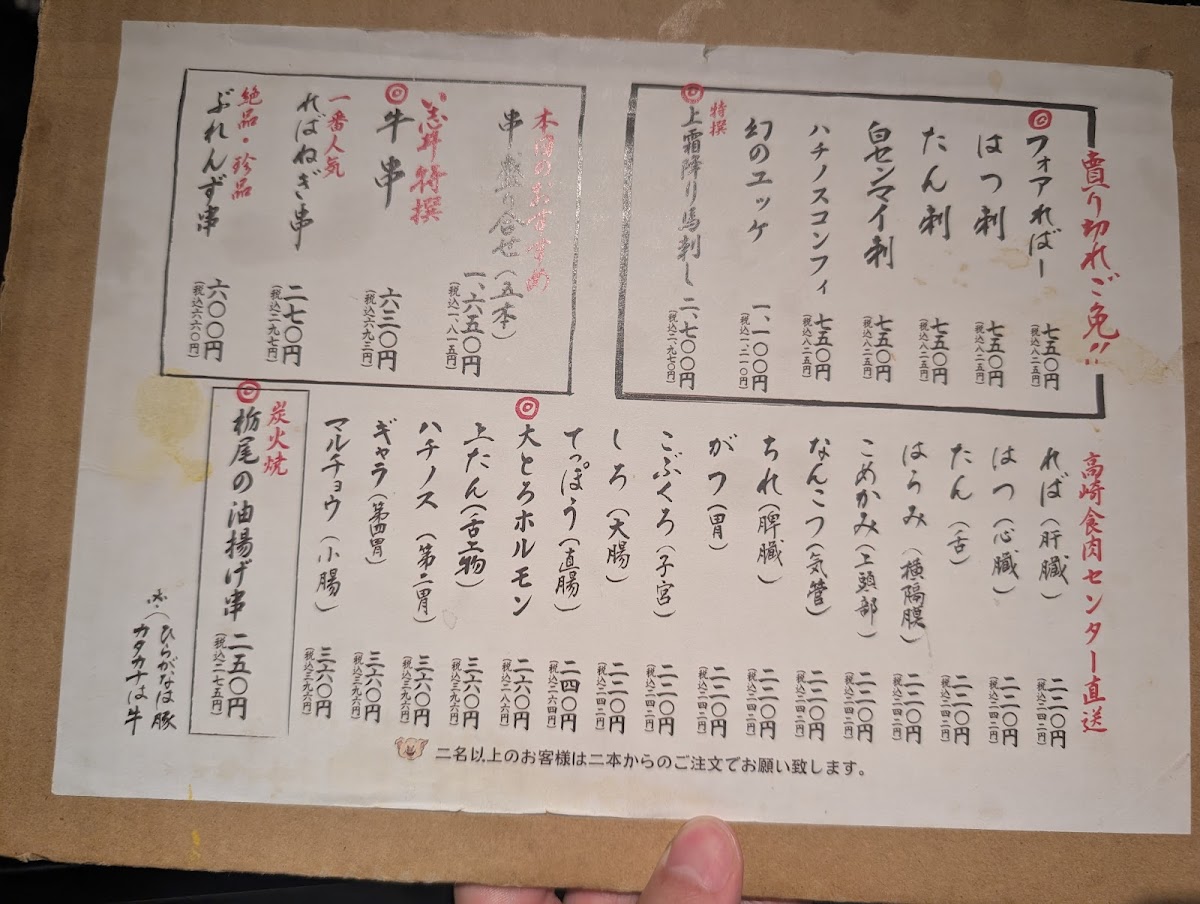 賣り切れご免!!
フォアればー 七五〇円
(税込八二五円)
はつ刺 七五〇円
(税込八二五円)
たん刺 七五〇円
(税込八二五円)
白センマイ刺 七五〇円
(税込八二五円)
ハチノスコンフィ 七五〇円
(税込八二五円)
幻のユッケ 一、一〇〇円
(税込一、二一〇円)
特撰
上霜降り馬刺し 二、七〇〇円
(税込二、九七〇円)
本日のおすすめ
串盛り合せ(五本) 一、六五〇円
(税込一、八一五円)
特撰
牛串 六三〇円
(税込六九三円)
一番人気
ればねぎ串 二七〇円
(税込二九七円)
絶品・珍品
ぶれんず串 六〇〇円
(税込六六〇円)
高崎食肉センター直送
れば(肝臓) 二二〇円
(税込二四二円)
はつ(心臓) 二二〇円
(税込二四二円)
たん(舌) 二二〇円
(税込二四二円)
はらみ(横隔膜) 二二〇円
(税込二四二円)
こめかみ(上頭部) 二二〇円
(税込二四二円)
なんこつ(気管) 二二〇円
(税込二四二円)
ちれ(脾臓) 二二〇円
(税込二四二円)
がつ(胃) 二二〇円
(税込二四二円)
こぶくろ(子宮) 二二〇円
(税込二四二円)
しろ(大腸) 二二〇円
(税込二四二円)
てっぽう(直腸) 二四〇円
(税込二六四円)
大とろホルモン 二六〇円
(税込二八六円)
上たん(舌上物) 三六〇円
(税込三九六円)
ハチノス(第二胃) 三六〇円
(税込三九六円)
ギャラ(第四胃) 三六〇円
(税込三九六円)
マルチョウ(小腸) 三六〇円
(税込三九六円)
炭火焼
栃尾の油揚げ串 二五〇円
(税込二七五円)
※(ひらがなは豚
カタカナは牛
二名以上のお客様は二本からのご注文でお願い致します。